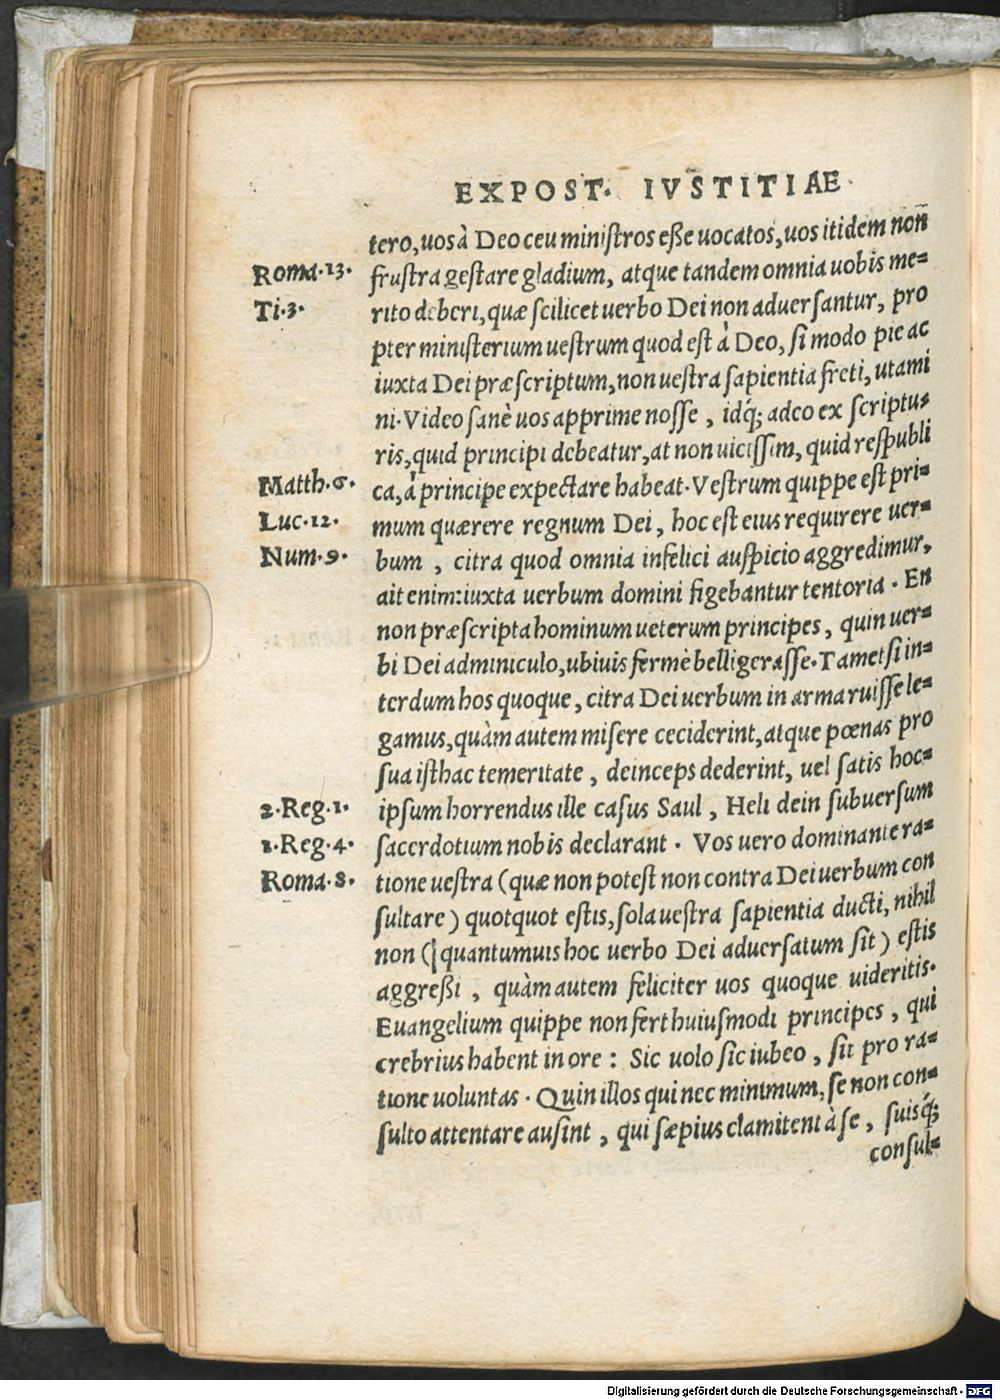 EXPOST. IVSTITIAE.
tero, uos à Deo ceu miniſtros eße uocatos, uos itidem non
Roma.13. fruſtra geſtare gladium, atque tandem omnia uobis me=
Ti.3. rito deberi, quæ ſcilicet uerbo Dei non aduerſantur, pro
pter miniſterium ueſtrum quod est à Deo, ſi modo pie ac
iuxta Dei præſcriptum, non ueſtra ſapientia freti, utami
ni. Video ſanè uos apprime noſſe, idq́; adeo ex ſcriptu=
ris, quid principi debeatur, at non uiciſſim, quid reſpubli
Matth.6. ca, à principe expectare habeat. Veſtrum quippe eſt pri=
Luc.12. mum quærere regnum Dei, hoc eſt eius requirere uer=
Num.9. bum, citra quod omnia infelici auſpicio aggredimur,
ait enim: iuxta uerbum domini figebantur tentoria. En
non præſcripta hominum ueterum principes, quin uer=
bi Dei adminiculo, ubiuis fermè belligeraſſe. Tametſi in=
terdum hos quoque, citra Dei uerbum in arma ruiſſe le=
gamus, quàm autem miſere ceciderint, atque pœnas pro
ſua iſthac temeritate, deinceps dederint, uel ſatis hoc=
2.Reg.1. ipſum horrendus ille caſus Saul, Heli dein ſubuerſum
1.Reg.4. ſacerdotium nobis declarant. Vos uero dominante ra=
Roma.8. tione ueſtra (quæ non poteſt non contra Dei uerbum con
ſultare) quotquot eſtis, ſola ueſtra ſapientia ducti, nihil
non (quantumuis hoc uerbo Dei aduerſatum ſit) eſtis
aggreßi, quàm autem feliciter uos quoque uideritis.
Euangelium quippe non fert huiuſmodi principes, qui
crebrius habent in ore: Sic uolo ſic iubeo, ſit pro ra=
tione uoluntas. Quin illos qui nec minimum, ſe non con=
ſulto attentare auſint, qui ſæpius clamitent à ſe, ſuisq́;
conſul=
Digitalisierung gefördert durch die Deutsche Forschungsgemeinschaft - DFG